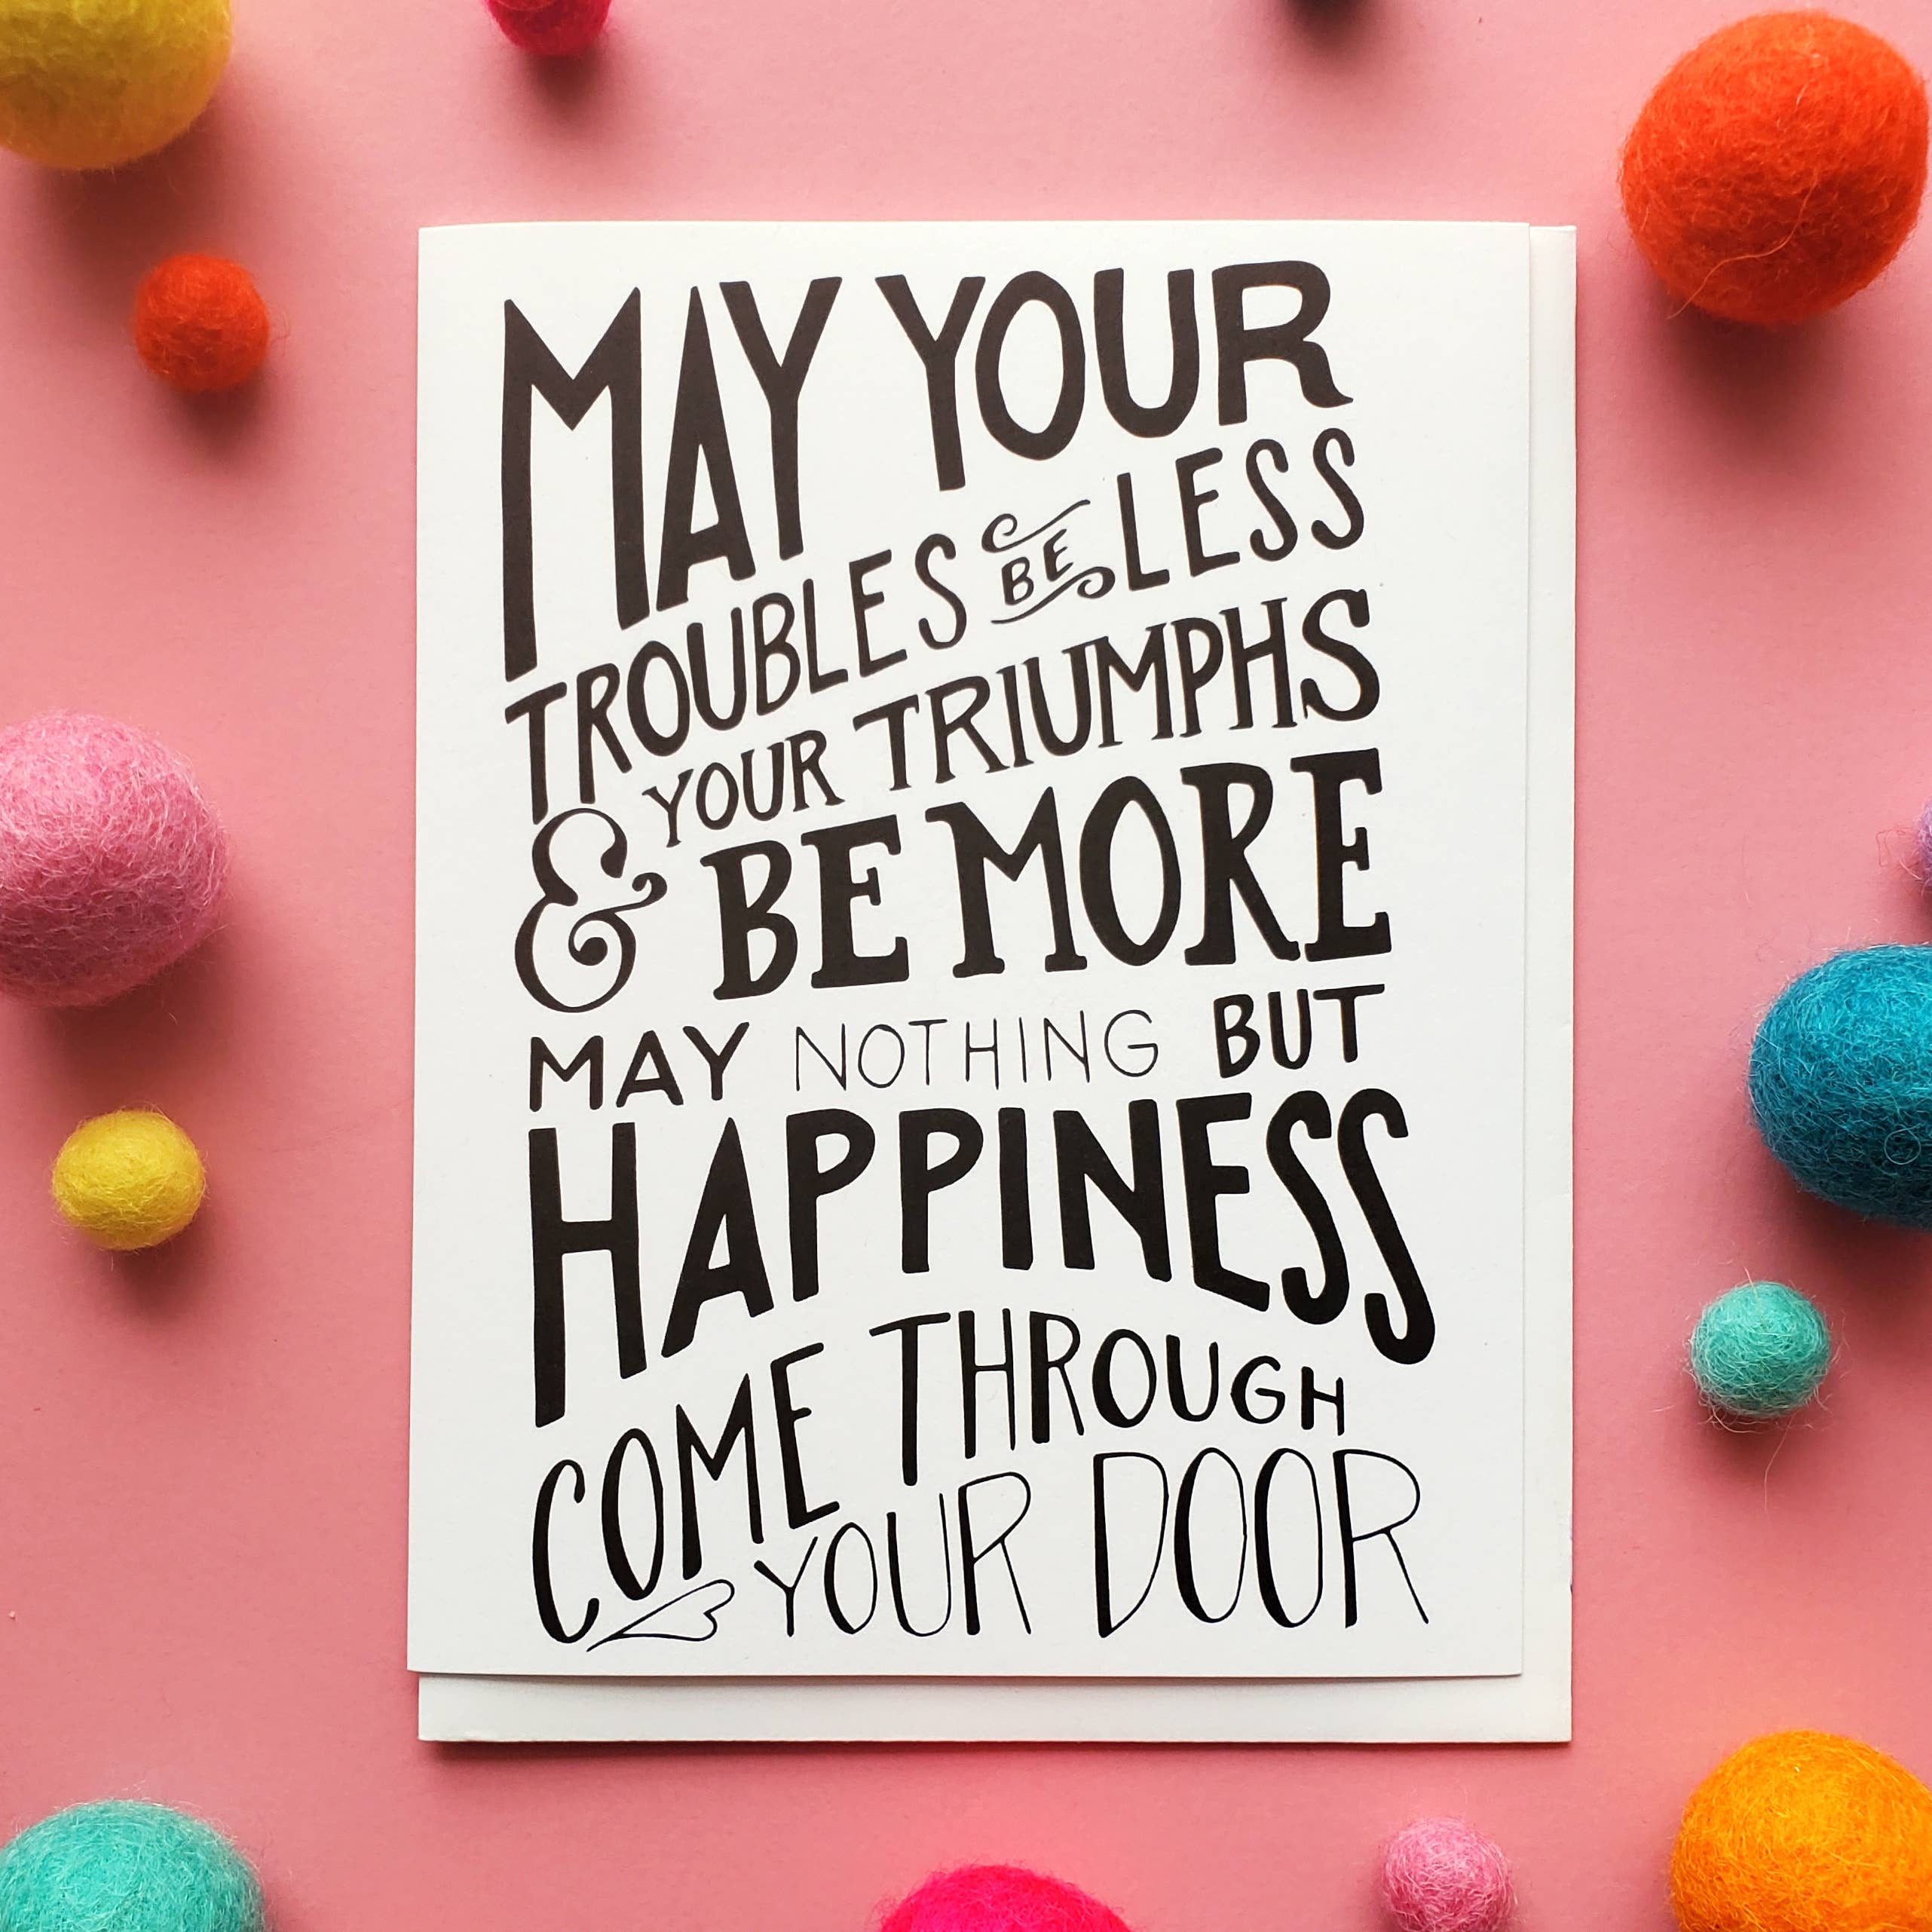 MAY YOUR
TROUBLES BE LESS
& YOUR TRIUMPHS
BE MORE
MAY NOTHING BUT
HAPPINESS
COME THROUGH
YOUR DOOR